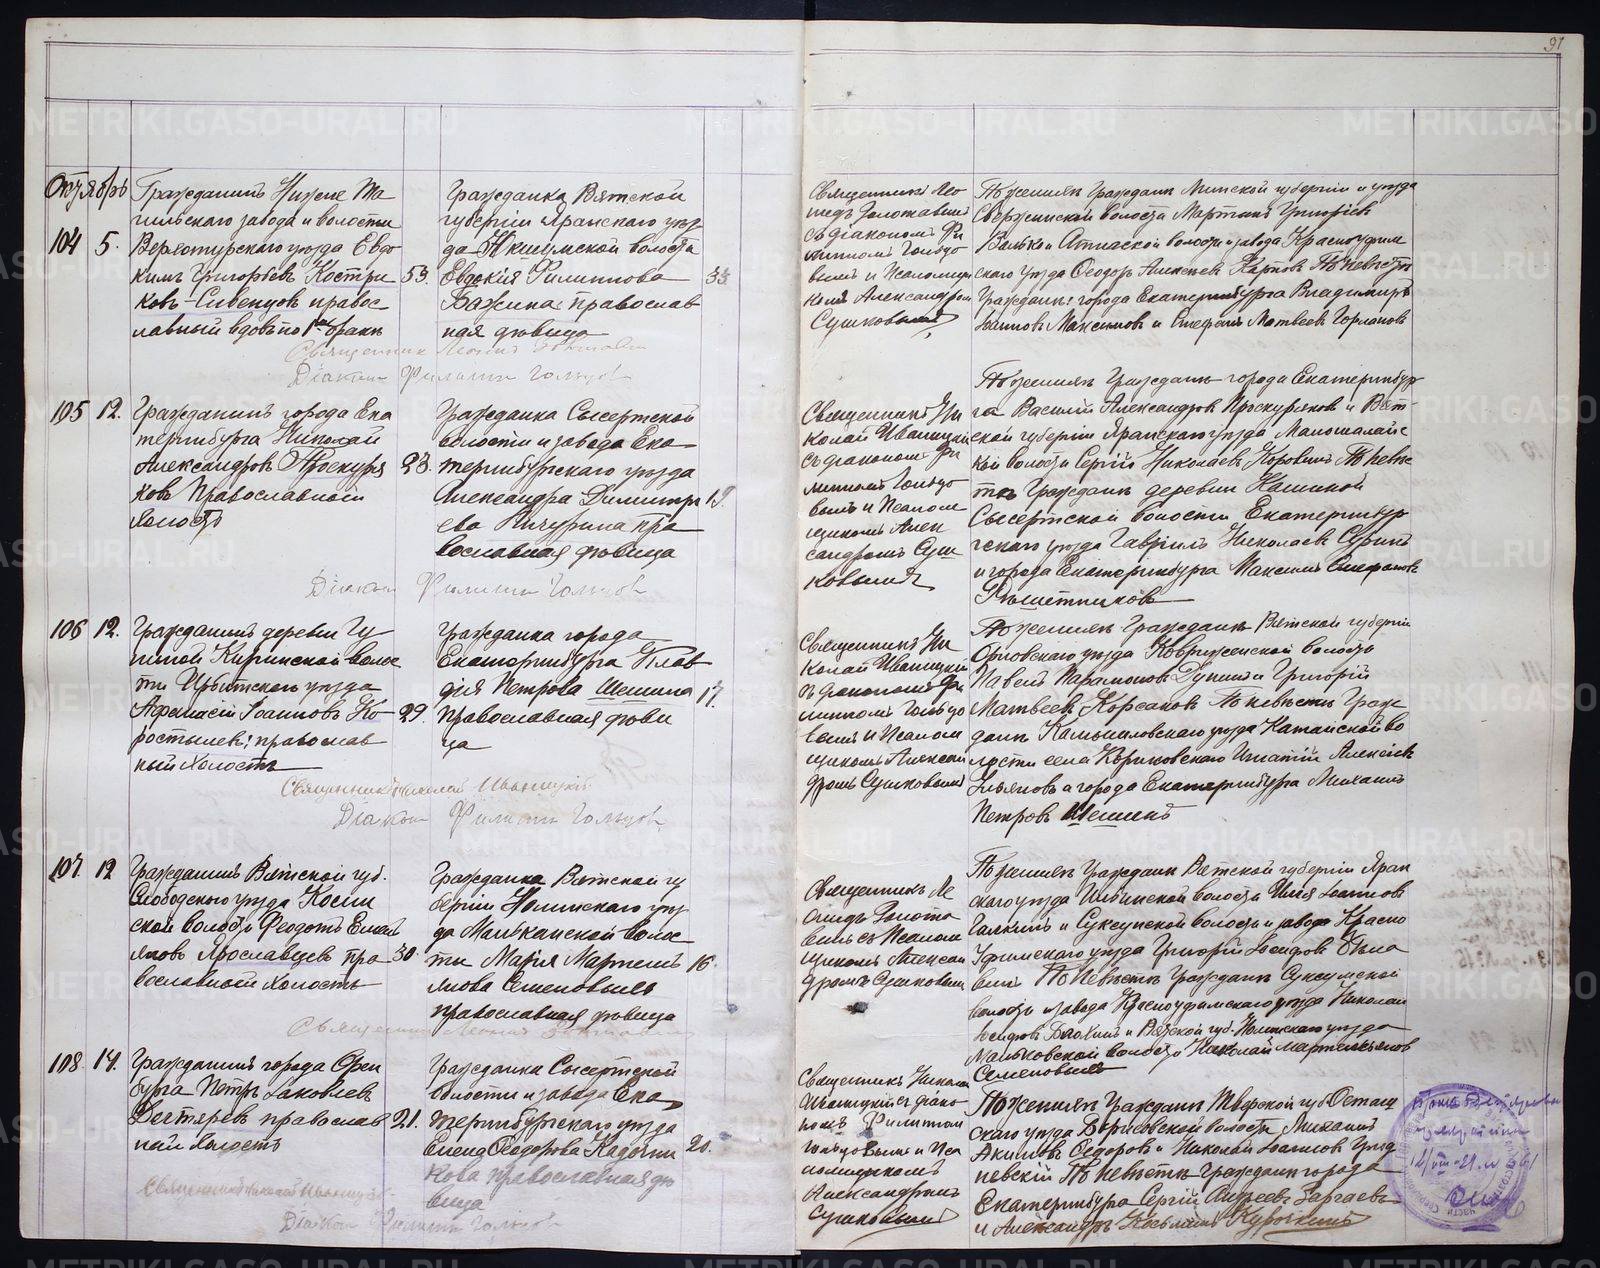 91
Октябрь
104 5.
Гражданинъ Нижне Та
гильскаго завода и волости
Верхотурскаго уѣзда Евдо
кимъ Григорьевъ Костри
ковъ-Сивенцовъ правос
лавный вдовъ по 1мъ бракѣ
53.
Гражданка Вятской
губерніи Яранскаго уѣз
да волости
Евдокія Филиппова
Бажина православ
ная дѣвица
33
Священникъ Лео
нидъ
съ діакономъ Фи
липпомъ Гольцо
вымъ и Псаломщи
комъ Александром
Сушковымъ
По женихѣ Граждане Минской губерніи и уѣзда
волости Мартинъ Григорьевъ
волости и завода Красноуфим
скаго уѣзда Ѳеодоръ Алексѣевъ Карповъ По невѣстѣ
Граждане: города Екатеринбурга Владимиръ
Іоанновъ Максимовъ и Стефанъ Матвѣевъ Горлановъ
Священникъ Леонидъ
Діаконъ Филиппъ Гольцовъ
105 12.
Гражданинъ города Ека
теринбурга Николай
Александровъ Проскуря
ковъ Православный
холостъ
23.
Гражданка Сысертской
волости и завода Ека
теринбургскаго уѣзда
Александра Димитрі
ева Кичурина пра
вославная дѣвица
Священникъ Ни
колай Иваницкій
съ діакономъ Фи
липпомъ Гольцо
вымъ и Псалом
щикомъ Алек
сандромъ Суш
ковымъ
По женихѣ Граждане города Екатеринбур
га Василій Александровъ Проскуряковъ и Вят-
ской губерніи Яранскаго уѣзда
кой волости Сергій Николаевъ Коровинъ По невѣс
тѣ Граждане деревни Кашиной
Сысертской волости Екатеринбур
гскаго уѣзда Гавріилъ Николаевъ Суринъ
и города Екатеринбурга Максимъ Стефановъ
Рѣшетниковъ
Діаконъ Филиппъ Гольцовъ
106 12.
Гражданинъ деревни Гу
ниной Киргинской волос
ти Ирбитскаго уѣзда
Аѳанасій Іоанновъ Ко-
ростылевъ; православ
ный Холостъ
29.
Гражданка города
Екатеринбурга Клав
дія Петрова Шешина
православная дѣви
ца
17.
Священникъ Ни
колай Иваницкій
съ діакономъ Фи
липпомъ Гольцо
вымъ и Псалом
щикомъ Алексан
дромъ Сушковымъ
По женихѣ Граждане Вятской губерніи
Орловскаго уѣзда волости
Павелъ Парамоновъ и Григорій
Матвѣевъ Корсаковъ По невѣстѣ Граж
дане Камышловскаго уѣзда Катайской во
лости села Игнатій Алексѣевъ
Ульяновъ и города Екатеринбурга Михаилъ
Петровъ Шешинъ
Священникъ Николай Иваницкій
Діаконъ Филиппъ Гольцовъ
107. 12
Гражданинъ Вятской губ.
Слободского уѣзда Косин
ской волости Ѳеодотъ Емель
яновъ Ярославцевъ пра
вославный холостъ
30.
Гражданка Вятской гу
берніи Нолинскаго уѣз
да волос
ти Марія Мартемь
янова Семеновыхъ
православная дѣвица
16.
Священникъ Ле
онидъ
съ Псалом
щикомъ Алексан
дромъ Сушковым
По женихѣ Граждане Вятской губерніи Яран
скаго уѣзда волости Илія Іоанновъ
и Суксунской волости и завода Красно
Уфимскаго уѣзда Григорій Іосифовъ
По Невѣстѣ Граждане Суксунской
волости завода Красноуфимскаго уѣзда Николай
Іосифовъ и Вятской губ. Нолинскаго уѣзда
волости Николай Мартемьяновъ
Семеновыхъ
Священникъ Леонидъ
108. 14.
Гражданинъ города Орен
бурга Петръ Іаковлевъ
Дегтяревъ православ
ный холостъ
21.
Гражданка Сысертской
волости и завода Ека
теринбургскаго уѣзда
Елена Ѳеодорова Кадочни
кова православная дѣ
вица
20.
Священникъ Николай
Иваницкій съ діако-
номъ Филиппом
Гольцовымъ и Пса
ломщикомъ
Александромъ
Сушковымъ
По женихѣ Граждане Тверской губ Осташ
скаго уѣзда Борисовской волости Михаилъ
Акимовъ Ѳедоровъ и Николай Іоанновъ
невскій По невѣстѣ Граждане города
Екатеринбурга Сергій Андреевъ
и Александръ Косьминъ Курочкинъ
Священникъ Николай Иваницкій
Діаконъ Филиппъ Гольцовъ
METRIKI.GASO-URAL.RU